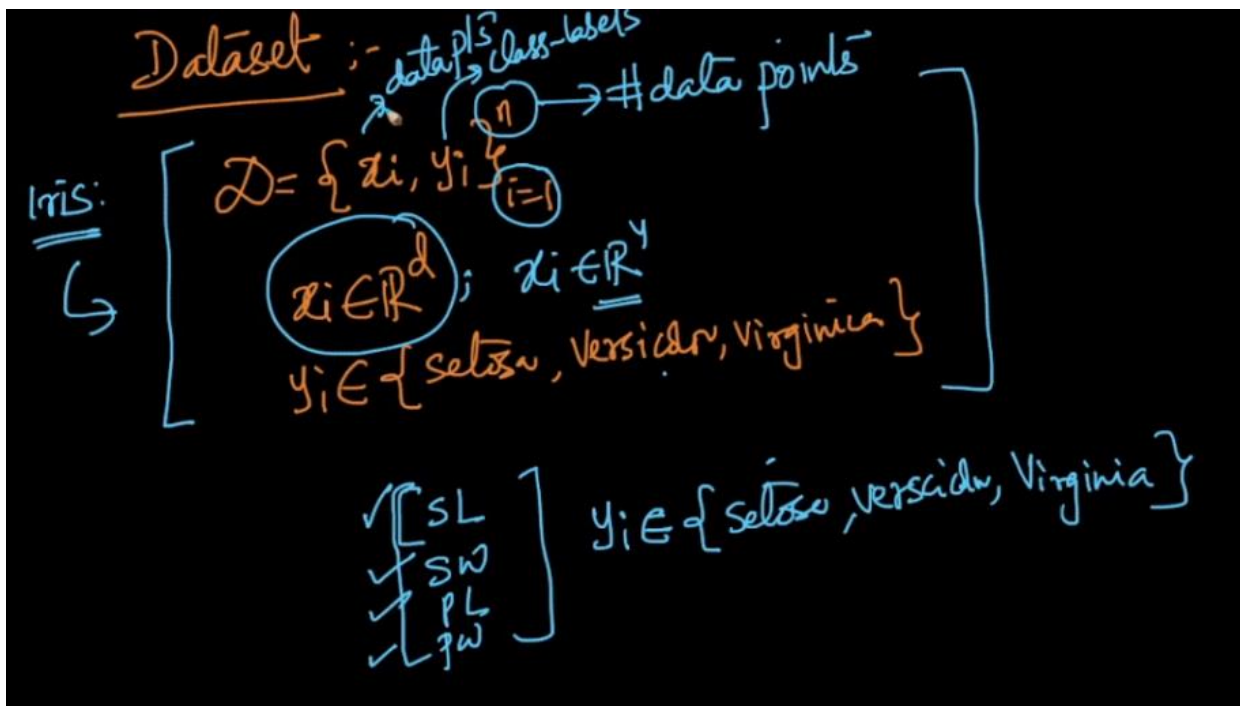 Dataset :-
data pts class-labels
n → #data points
Iris: D = { xi, yi } i=1
xi ∈ ℝ^d ; xi ∈ ℝ^4
yi ∈ { setosa, versicolor, virginica }
SL
SW
PL
PW
yi ∈ { setosa, versicolor, Virginia }